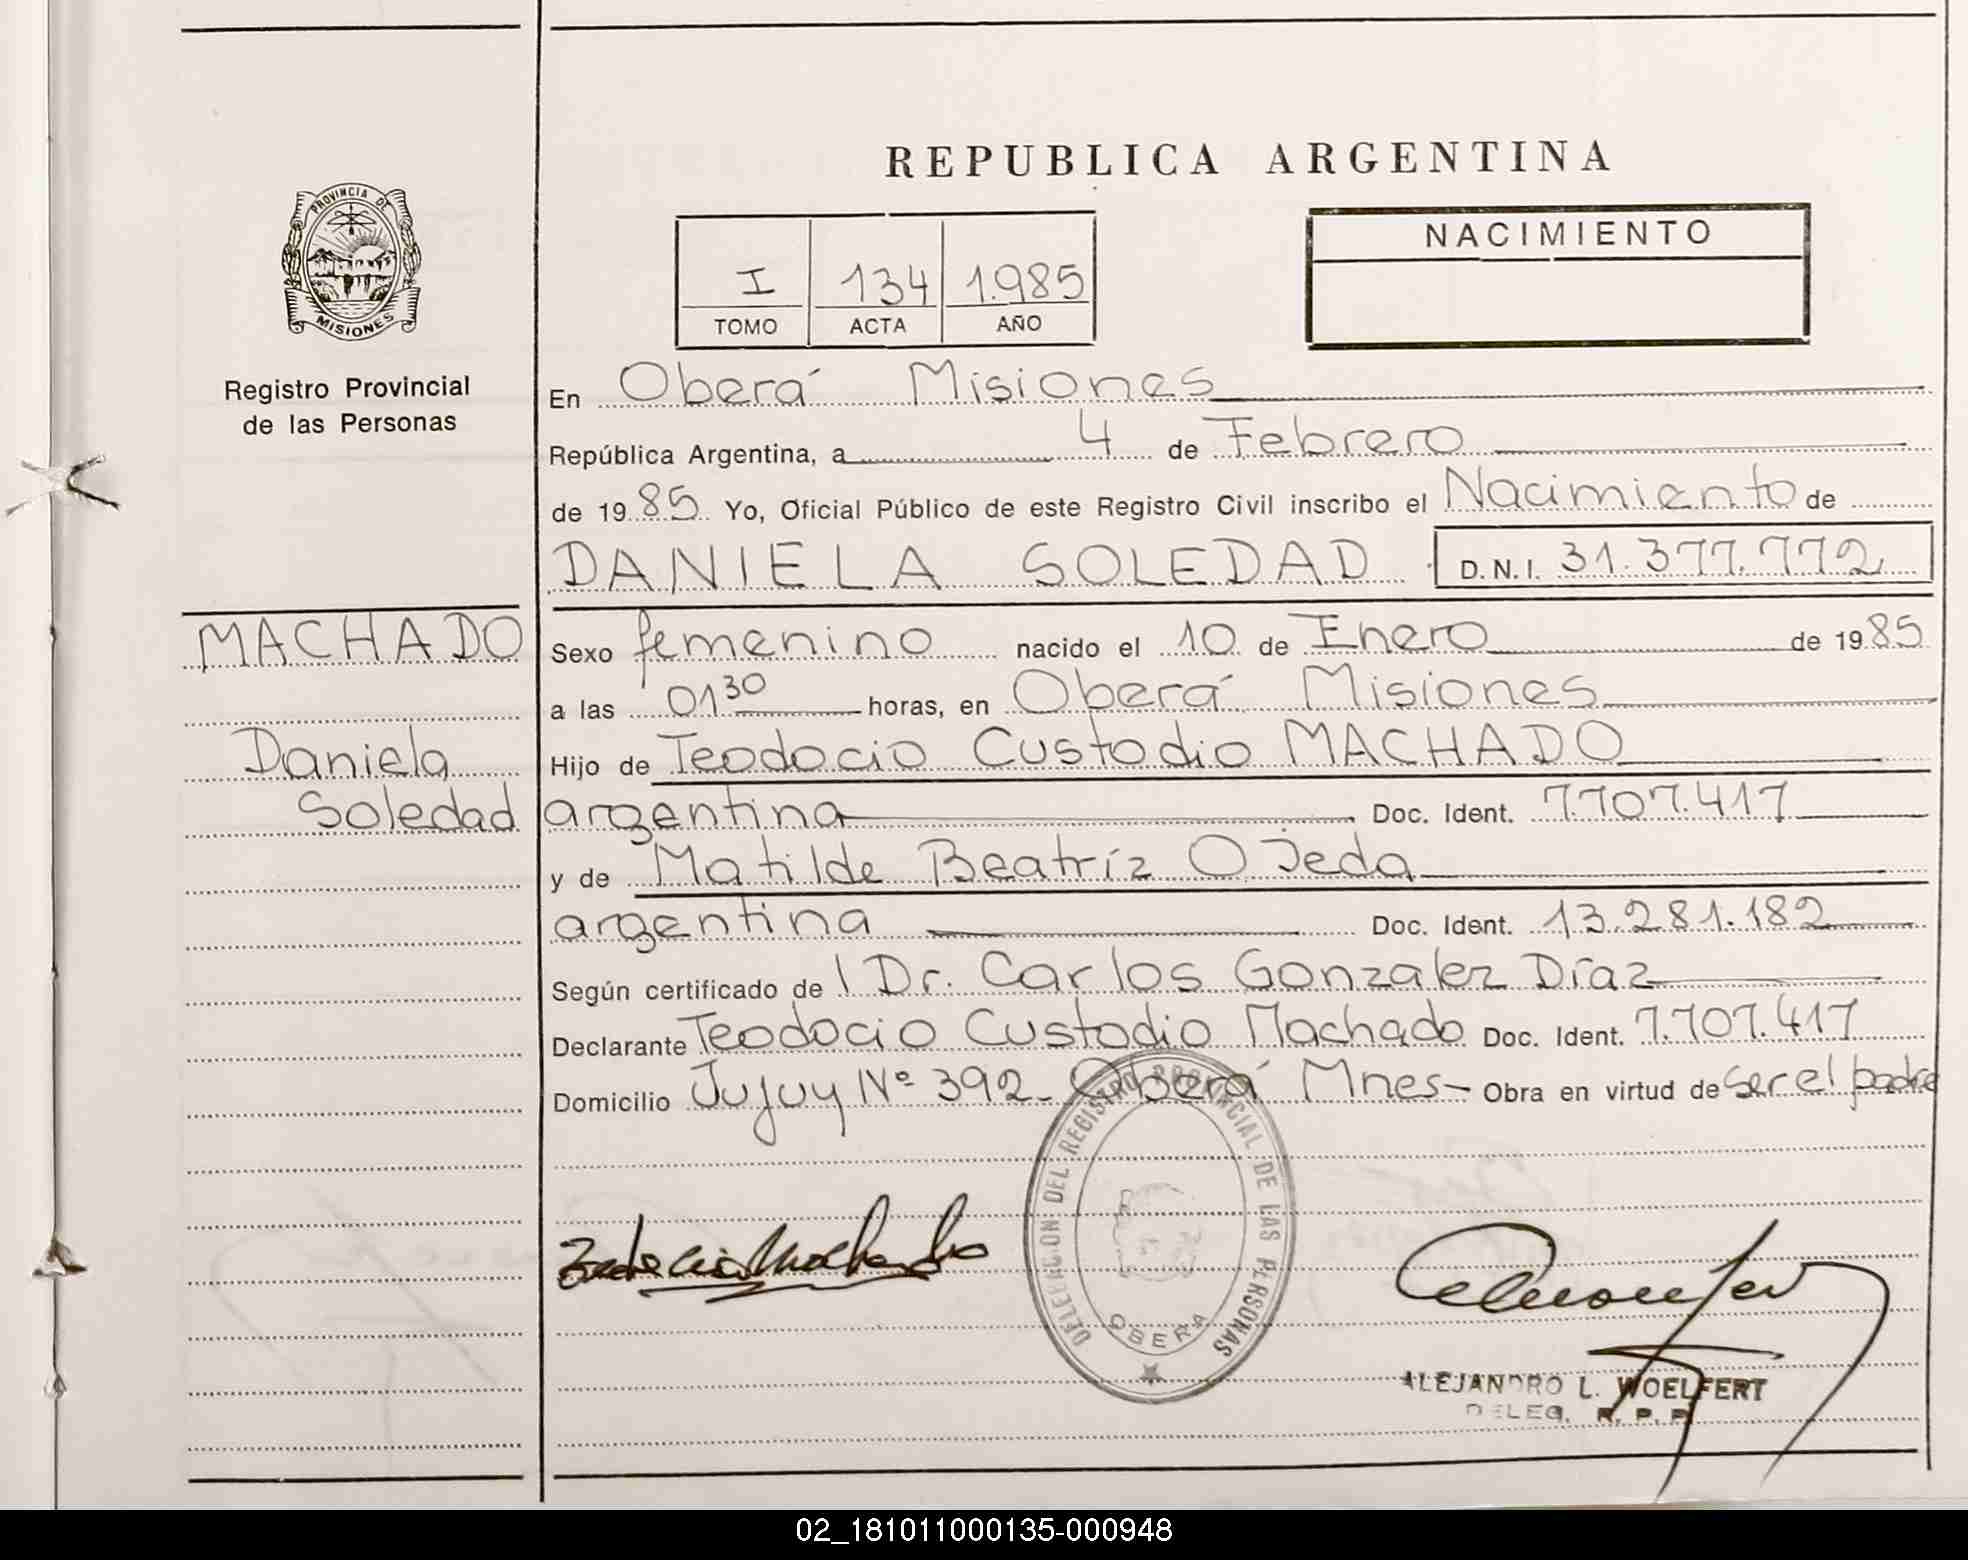 REPUBLICA ARGENTINA
PROVINCIA DE
MISIONES
Registro Provincial
de las Personas
NACIMIENTO
I 134 1.985
TOMO ACTA AÑO
En Oberá Misiones
República Argentina, a 4 de Febrero
de 1985 Yo, Oficial Público de este Registro Civil inscribo el Nacimiento de
DANIELA SOLEDAD D.N.I. 31.377.772
MACHADO
Daniela
Soledad
Sexo femenino nacido el 10 de Enero de 1985
a las 01 30 horas, en Oberá Misiones
Hijo de Teodocio Custodio MACHADO
argentina Doc. Ident. 7.707.417
y de Matilde Beatríz Ojeda
argentina Doc. Ident. 13.281.182
Según certificado de Dr. Carlos Gonzalez Díaz
Declarante Teodocio Custodio Machado Doc. Ident. 7.707.417
Domicilio Jujuy Nº 392 - Oberá Mnes - Obra en virtud de ser el padre
DELEGACION DEL REGISTRO PROVINCIAL DE LAS PERSONAS
OBERA
ALEJANDRO L. WOELFERT
DELEG. R. P. P.
02_181011000135-000948